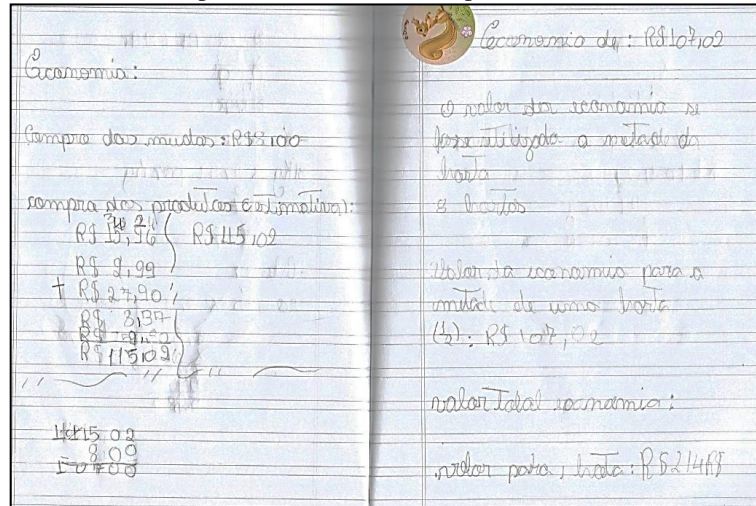 Economia:
Compra das mudas: R$8,00
compra dos produtos (estimativa):
R$ 15,96 R$ 115,02
R$ 2,99
+ R$ 27,90
R$ 3,57
R$ 115,02
115 02
8 00
107 00
Economia de: R$107,02
O valor da economia se
fosse utilizado a metade da
horta
s hortas
Valor da economia para a
metade de uma horta
(½): R$ 107,02
valor Total economia:
valor para 1 horta: R$214